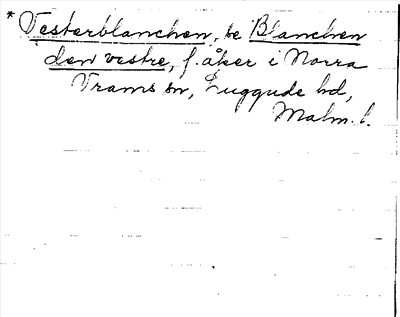 * Vesterblanchen, se Blanchen
den vestre, f. åker i Norra
Vrams sn, Luggude hd,
Malm. l.